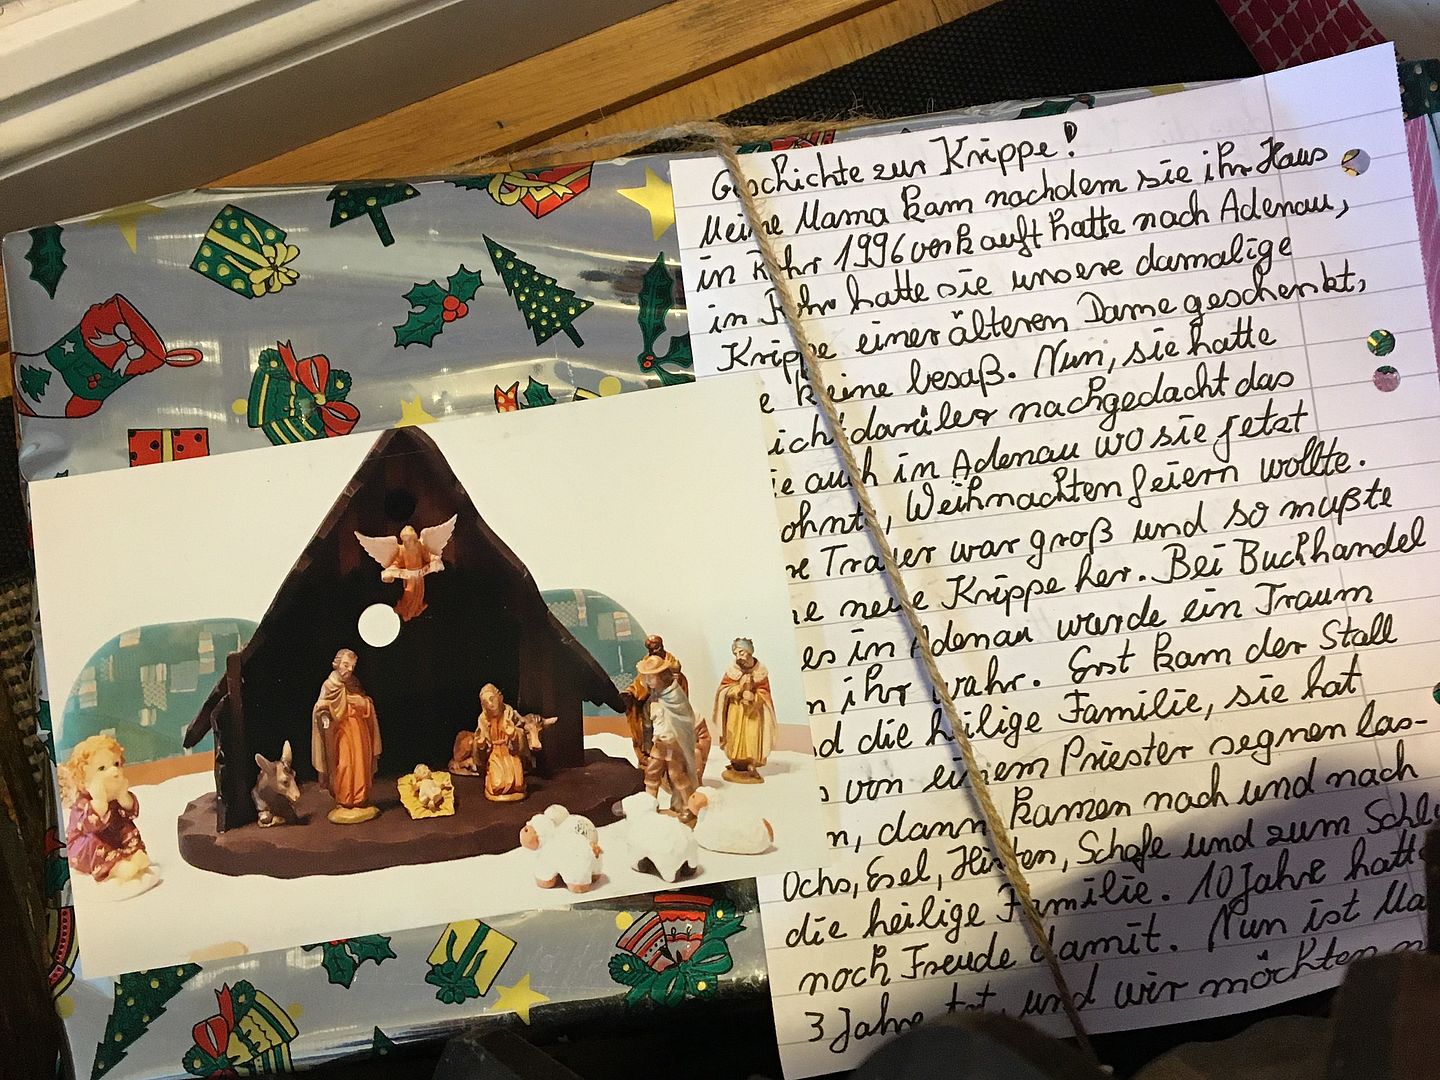 Geschichte zur Krippe!
Meine Mama kam nachdem sie ihr Haus
in Rohr 1996 verkauft hatte nach Adenau,
in Rohr hatte sie unsere damalige
Krippe einer älteren Dame geschenkt,
e keine besaß. Nun, sie hatte
ich darüber nachgedacht das
ie auch in Adenau wo sie jetzt
ohnt, Weihnachten feiern wollte.
re Trauer war groß und so mußte
ne neue Krippe her. Bei Buchhandel
es in Adenau wurde ein Traum
n ihr wahr. Erst kam der Stall
d die heilige Familie, sie hat
von einem Priester segnen las-
n, dann kamen nach und nach
Ochs, Esel, Hirten, Schafe und zum Schlu
die heilige Familie. 10 Jahre hatte
noch Freude damit. Nun ist Ma
3 Jahre tot, und wir möchten